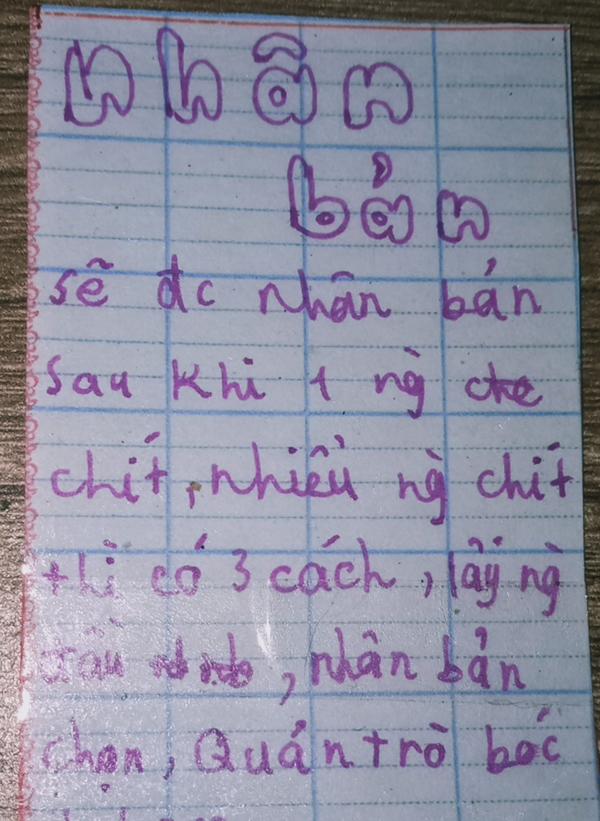 nhân
bản
sẽ đc nhân bản
sau khi 1 ng̀
chít, nhiều ng̀ chít
thì có 3 cách, lấy ng̀
đầu, nhân bản
chọn, Quản trò bốc